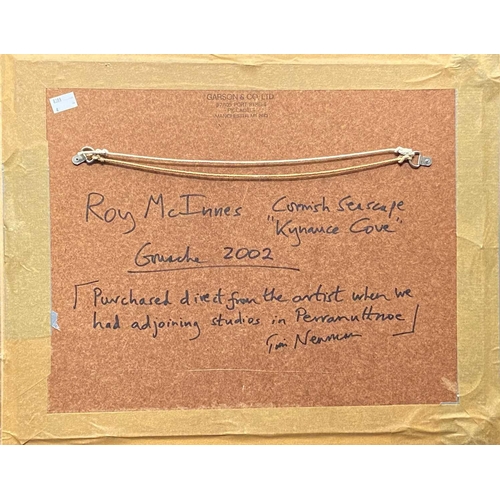 Roy McInnes Cornish Seascape
"Kynance Cove"
Gouache 2002
Purchased direct from the artist when we
had adjoining studios in Perranuthnoe
Tim Newman